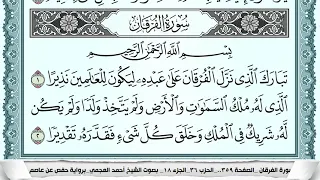 سُورَةُ الْفُرْقَانِ
بِسْمِ اللَّهِ الرَّحْمَٰنِ الرَّحِيمِ
تَبَارَكَ الَّذِي نَزَّلَ الْفُرْقَانَ عَلَىٰ عَبْدِهِ لِيَكُونَ لِلْعَالَمِينَ نَذِيرًا ١
الَّذِي لَهُ مُلْكُ السَّمَٰوَٰتِ وَالْأَرْضِ وَلَمْ يَتَّخِذْ وَلَدًا وَلَمْ يَكُن
لَّهُ شَرِيكٌ فِي الْمُلْكِ وَخَلَقَ كُلَّ شَيْءٍ فَقَدَّرَهُ تَقْدِيرًا ٢
سورة الفرقان ..الصفحة ٣٥٩... الحزب ٣٦ .الجزء ١٨ .. بصوت الشيخ أحمد العجمي ..برواية حفص عن عاصم